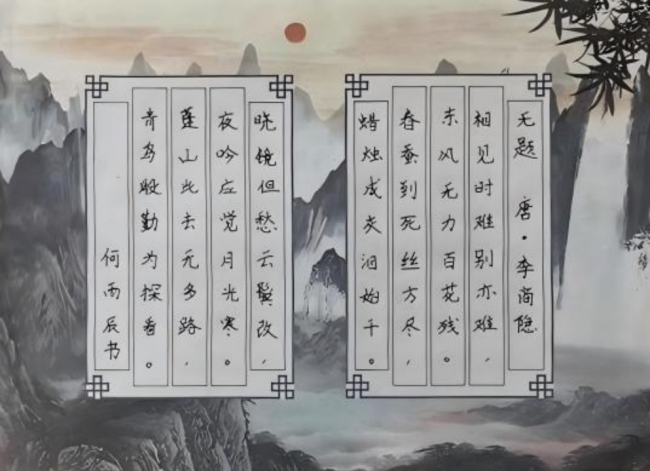 无题 唐·李商隐
相见时难别亦难，
东风无力百花残。
春蚕到死丝方尽，
蜡烛成灰泪始干。
晓镜但愁云鬓改，
夜吟应觉月光寒。
蓬山此去无多路，
青鸟殷勤为探看。
何雨辰书